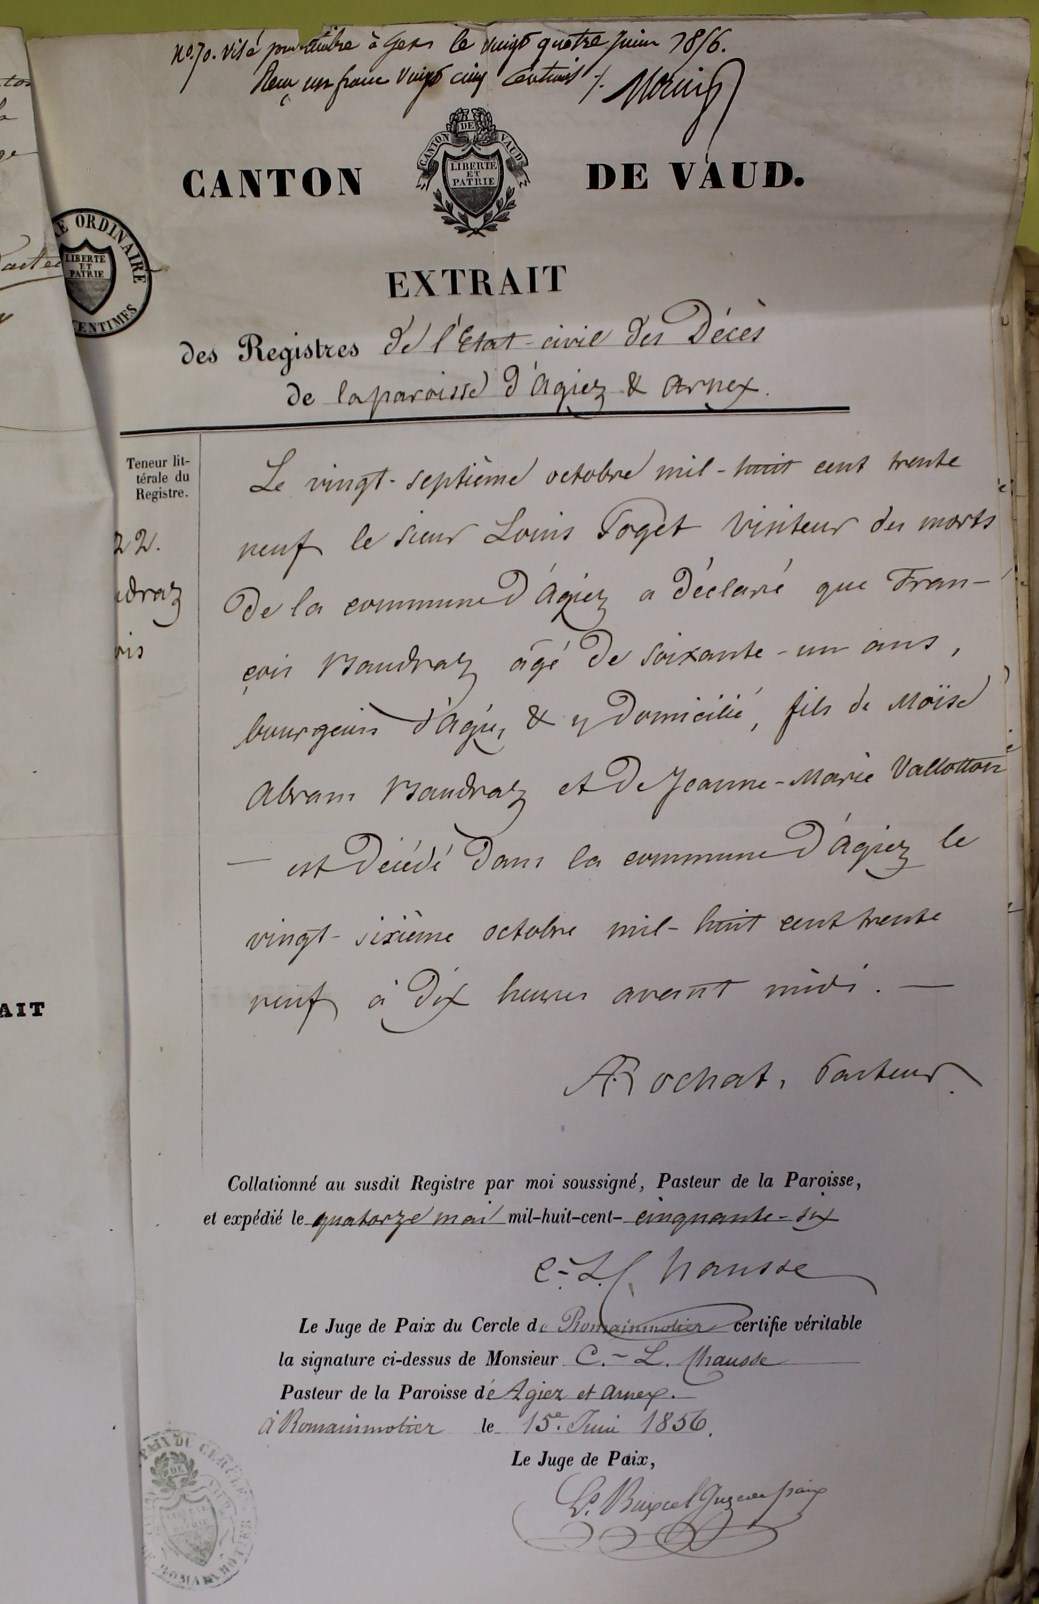 No. 70. Visé pour timbre à Gex le vingt quatre Juin 1856.
Reçu un franc vingt cinq centimes
CANTON DE VAUD
LIBERTE
ET
PATRIE
CANTON DE VAUD.
ORDINAIRE
LIBERTE
ET
PATRIE
CENTIMES
EXTRAIT
des Registres de l'Etat-civil des Décès
de la paroisse d'Agiez & Arnex.
Teneur lit-
térale du
Registre.
22.
udraz
ois
Le vingt-septième octobre mil-huit cent trente
neuf le sieur Louis Poget visiteur des morts
de la commune d'Agiez a déclaré que Fran-
çois Baudraz âgé de soixante-un ans,
bourgeois d'Agiez & y domicilié, fils de Moïse
Abram Baudraz et de Jeanne-Marie Vallotton
— est décédé dans la commune d'Agiez le
vingt-sixième octobre mil-huit cent trente
neuf à dix heures avant midi. —
A Rochat, Pasteur.
Collationné au susdit Registre par moi soussigné, Pasteur de la Paroisse,
et expédié le quatorze mai mil-huit-cent-cinquante-six
C.-L. Chausse
Le Juge de Paix du Cercle de Romainmotier certifie véritable
la signature ci-dessus de Monsieur C.-L. Chausse
Pasteur de la Paroisse de Agiez et Arnex.
à Romainmotier le 15e. Juin 1856.
Le Juge de Paix,
Juge de paix
AIT